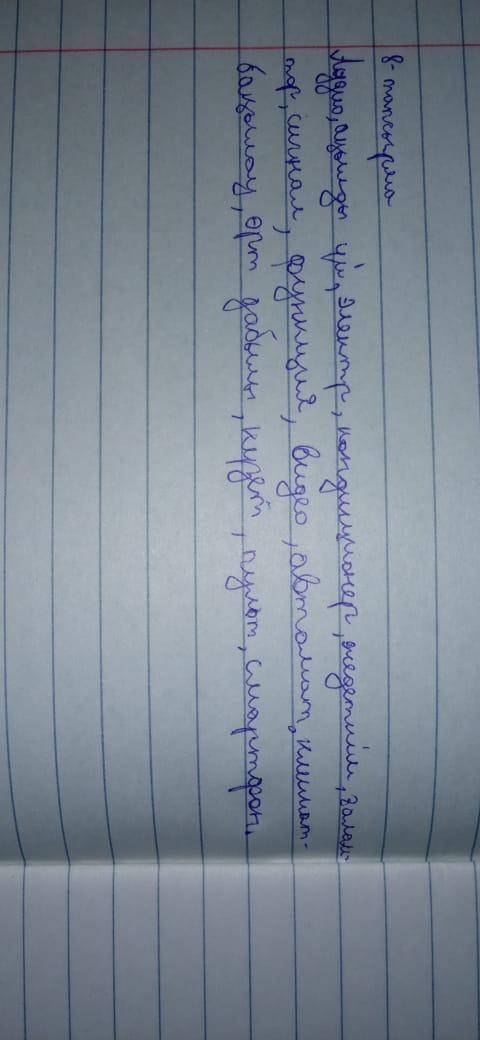 8-тапсырма
Аудио, ақылды үй, электр, кондиционер, жедеткіш, ғалам-
тор, сигнал, функция, видео, автомат, климат-
бақылау, өрт дабылы, күзет, пульт, смартфон.